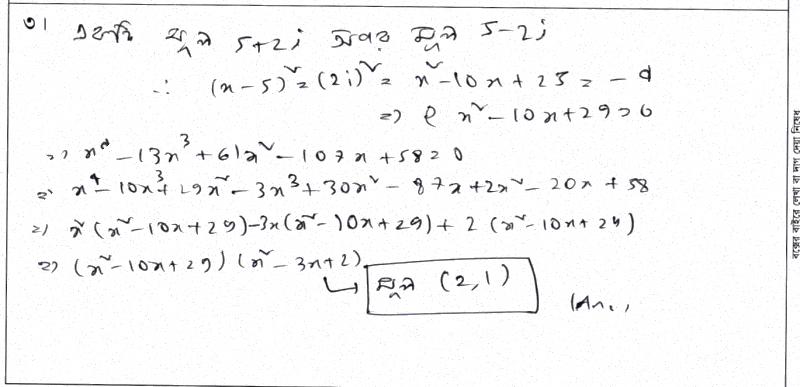 ৩। একটি মূল 5+2i অপর মূল 5-2i
∴ (x-5)² = (2i)² = x²-10x+25 = -4
=> x²-10x+29=0
=> x⁴-13x³+61x²-107x+58=0
=> x⁴-10x³+29x²-3x³+30x²-87x+2x²-20x+58
=> x²(x²-10x+29)-3x(x²-10x+29)+2(x²-10x+29)
=> (x²-10x+29)(x²-3x+2)
↳ মূল (2,1)
(Ans.)
বক্সের বাইরে লেখা বা দাগ দেয়া নিষেধ